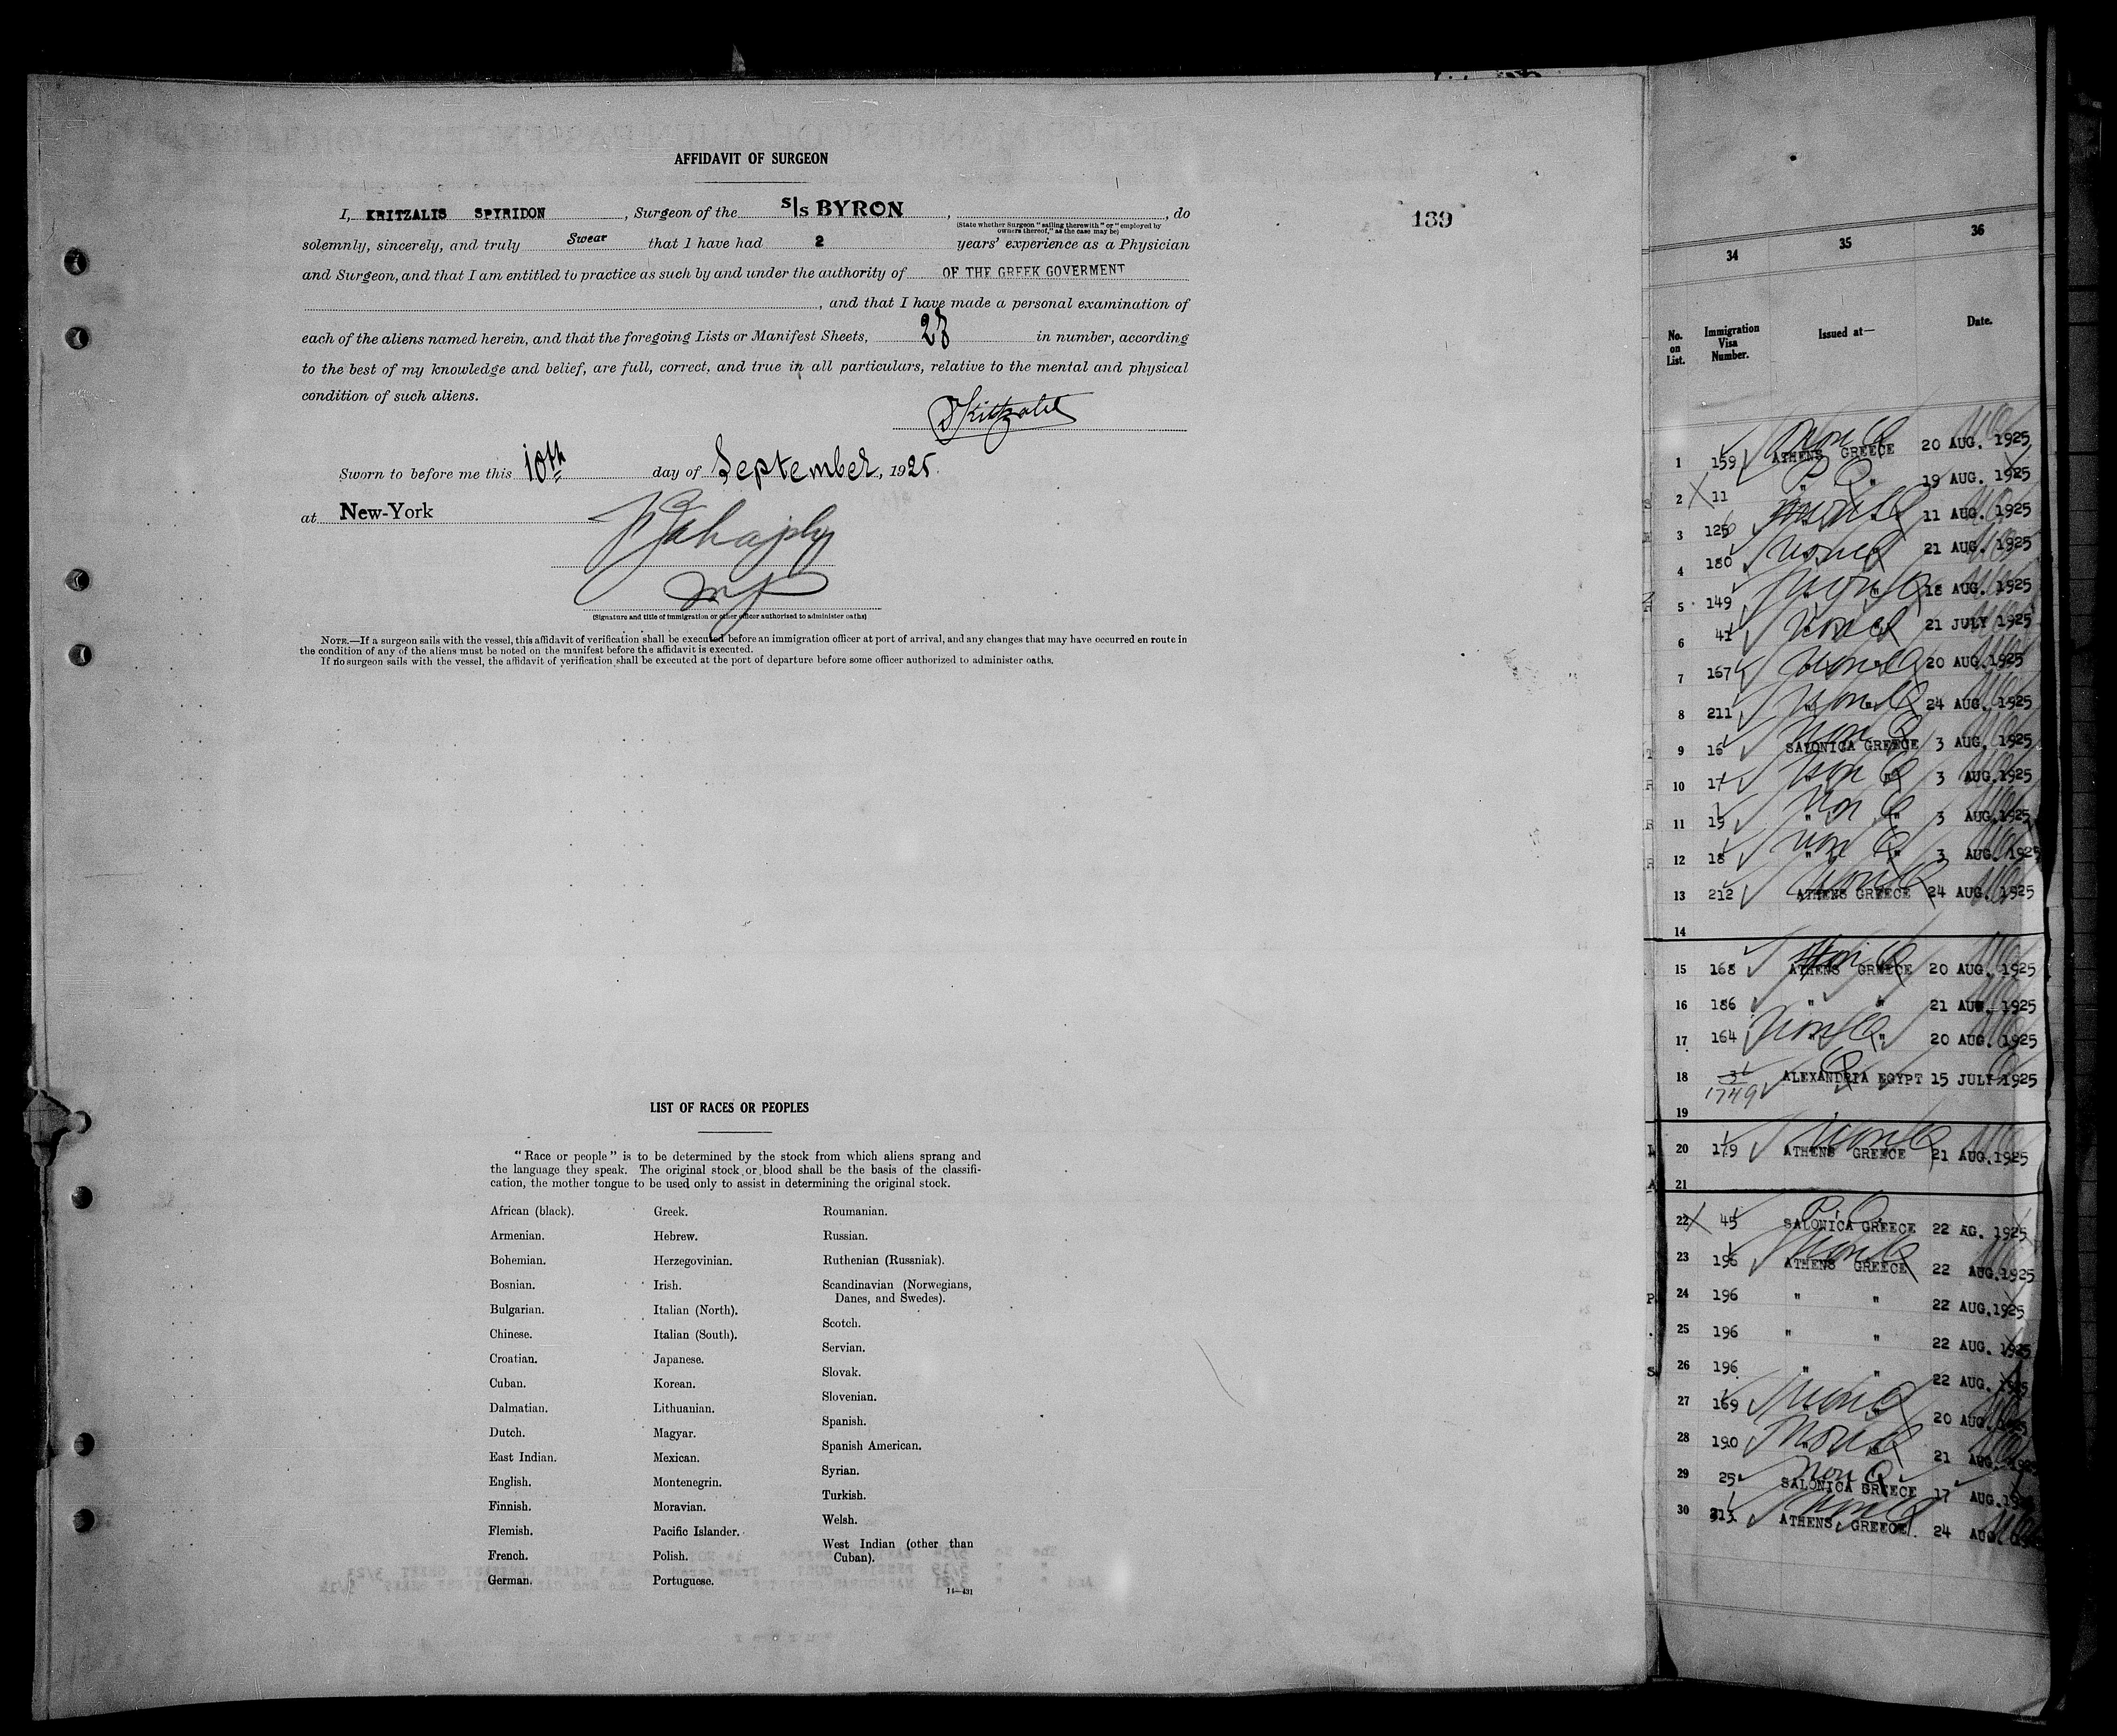 AFFIDAVIT OF SURGEON
I, KRITZALIS SPYRIDON, Surgeon of the S/S BYRON, , do
(State whether Surgeon "sailing therewith" or "employed by
owners thereof," as the case may be)
139
solemnly, sincerely, and truly Swear that I have had 2 years' experience as a Physician
and Surgeon, and that I am entitled to practice as such by and under the authority of OF THE GREEK GOVERMENT
, and that I have made a personal examination of
each of the aliens named herein, and that the foregoing Lists or Manifest Sheets, 28 in number, according
to the best of my knowledge and belief, are full, correct, and true in all particulars, relative to the mental and physical
condition of such aliens.
SKritzalis
Sworn to before me this 10th day of September, 1925.
at New-York
(Signature and title of immigration or other officer authorized to administer oaths)
NOTE.—If a surgeon sails with the vessel, this affidavit of verification shall be executed before an immigration officer at port of arrival, and any changes that may have occurred en route in
the condition of any of the aliens must be noted on the manifest before the affidavit is executed.
If no surgeon sails with the vessel, the affidavit of verification shall be executed at the port of departure before some officer authorized to administer oaths.
LIST OF RACES OR PEOPLES
"Race or people" is to be determined by the stock from which aliens sprang and
the language they speak. The original stock or blood shall be the basis of the classifi-
cation, the mother tongue to be used only to assist in determining the original stock.
African (black).
Armenian.
Bohemian.
Bosnian.
Bulgarian.
Chinese.
Croatian.
Cuban.
Dalmatian.
Dutch.
East Indian.
English.
Finnish.
Flemish.
French.
German.
Greek.
Hebrew.
Herzegovinian.
Irish.
Italian (North).
Italian (South).
Japanese.
Korean.
Lithuanian.
Magyar.
Mexican.
Montenegrin.
Moravian.
Pacific Islander.
Polish.
Portuguese.
Roumanian.
Russian.
Ruthenian (Russniak).
Scandinavian (Norwegians,
Danes, and Swedes).
Scotch.
Servian.
Slovak.
Slovenian.
Spanish.
Spanish American.
Syrian.
Turkish.
Welsh.
West Indian (other than
Cuban).
14—431
34 35 36
No. on List. Immigration Visa Number. Issued at— Date.
1 159 ATHENS GREECE 20 AUG. 1925
2 11 " " 19 AUG. 1925
3 125 11 AUG. 1925
4 180 21 AUG. 1925
5 149 18 AUG. 1925
6 41 21 JULY 1925
7 167 20 AUG. 1925
8 211 " " 24 AUG. 1925
9 16 SALONICA GREECE 3 AUG. 1925
10 17 " " 3 AUG. 1925
11 15 " " 3 AUG. 1925
12 18 " " 3 AUG. 1925
13 212 ATHENS GREECE 24 AUG. 1925
14
15 168 ATHENS GREECE 20 AUG. 1925
16 186 " " 21 AUG. 1925
17 164 " " 20 AUG. 1925
18 31 ALEXANDRIA EGYPT 15 JULY 1925
1749
19
20 179 ATHENS GREECE 21 AUG. 1925
21
22 45 SALONICA GREECE 22 AG. 1925
23 196 ATHENS GREECE 22 AUG. 1925
24 196 " " 22 AUG. 1925
25 196 " " 22 AUG. 1925
26 196 " " 22 AUG. 1925
27 169 20 AUG. 1925
28 190 " " 21 AUG. 1925
29 25 SALONICA GREECE 17 AUG. 1925
30 213 ATHENS GREECE. 24 AUG.